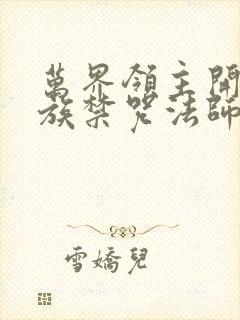 萬界領主開
族禁咒法師
雪嬌兒